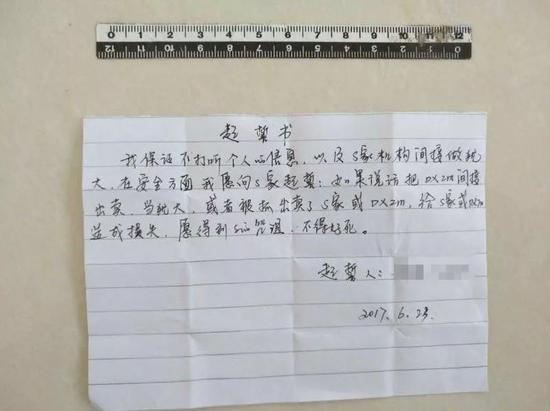 0 1 2 3 4 5 6 7 8 9 10 11 12
12 11 10 9 8 7 6 5 4 3 2 1 0
起誓书
我保证不打听个人的信息,以及S家机构间接做犹
大,在安全方面我愿向S家起誓:如果说话把DXZM间接
出卖,当犹大,或者被抓出卖了S家或DXZM,给S家或
造成损失,愿得到咒诅,不得好死。
起誓人:
2017.6.23.